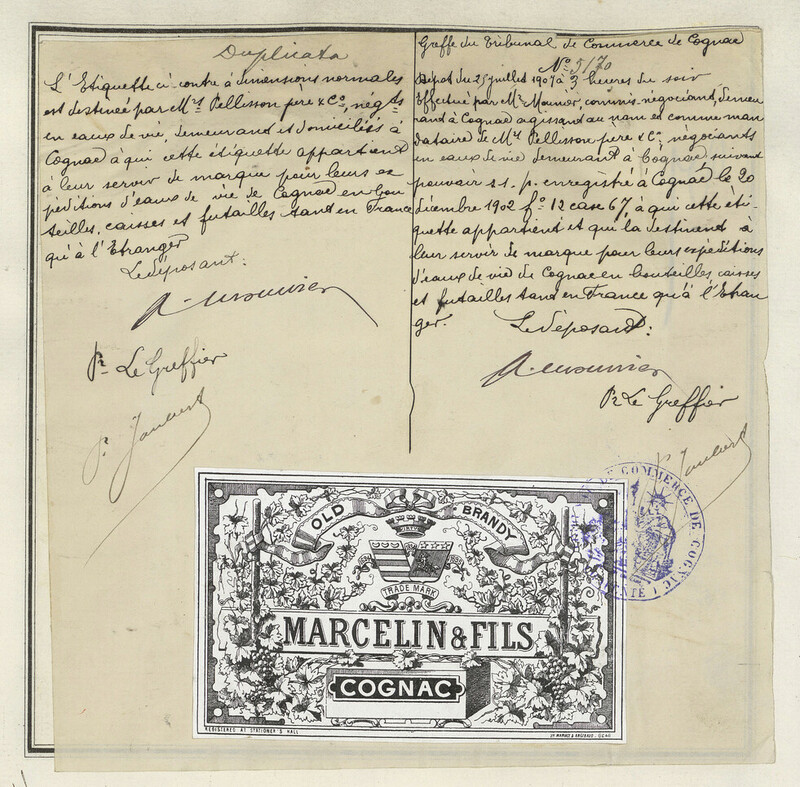 Duplicata
L'Etiquette ci-contre à dimensions normales
est destinée par Mrs Pellisson père & Co, négts
en eaux de vie, demeurant et domiciliés à
Cognac à qui cette étiquette appartient
à leur servir de marque pour leurs ex
péditions d'eaux de vie de Cognac en bou
teilles, caisses et futailles tant en France
qu'à l'Etranger
Le déposant:
Pr Le Greffier
Greffe du Tribunal de Commerce de Cognac
No 5170
Dépôt du 25 juillet 1907 à 3 heures du soir
Effectué par Mr Mounier, commis-négociant, demeu
rant à Cognac agissant au nom et comme man
dataire de Mrs Pellisson père & Co, négociants
en eaux de vie demeurant à Cognac, suivant
pouvoir s.s.p. enregistré à Cognac le 20
décembre 1902 fo 12 case 67, à qui cette éti-
quette appartient et qui la destinent à
leur servir de marque pour leurs expéditions
d'eaux de vie de Cognac en bouteilles caisses
et futailles tant en France qu'à l'Etran
ger.
Le déposant:
Pr Le Greffier
DE COMMERCE DE COGNAC
OLD BRANDY
TRADE MARK
MARCELIN & FILS
COGNAC
REGISTERED AT STATIONER'S HALL